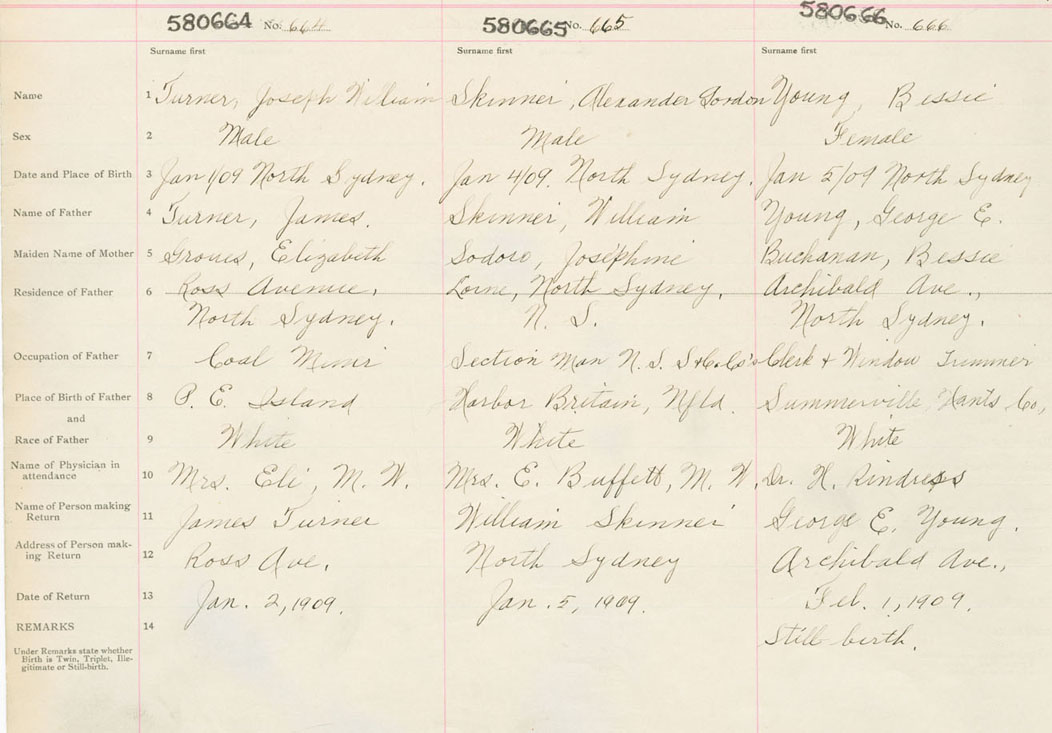 580664 No. 664 580665 No. 665 580666 No. 666
Surname first Surname first Surname first
Name 1 Turner, Joseph William Skinner, Alexander Gordon Young, Bessie
Sex 2 Male Male Female
Date and Place of Birth 3 Jan 1/09 North Sydney. Jan 4/09. North Sydney. Jan 5/09 North Sydney
Name of Father 4 Turner, James. Skinner, William Young, George E.
Maiden Name of Mother 5 Groves, Elizabeth Sodoro, Josephine Buchanan, Bessie
Residence of Father 6 Ross Avenue, Lorne, North Sydney, Archibald Ave.,
North Sydney. N. S. North Sydney.
Occupation of Father 7 Coal Miner Section Man N. S. S & C. Co's Clerk & Window Trimmer
Place of Birth of Father 8 P. E. Island Harbor Britain, Nfld. Summerville, Hants Co,
and
Race of Father 9 White White White
Name of Physician in
attendance 10 Mrs. Eli, M. W. Mrs. E. Buffett, M. W. Dr. H. Rindress
Name of Person making
Return 11 James Turner William Skinner George E. Young.
Address of Person mak-
ing Return 12 Ross Ave. North Sydney Archibald Ave.,
Date of Return 13 Jan. 2, 1909. Jan. 5, 1909. Feb. 1, 1909.
REMARKS 14 Still birth.
Under Remarks state whether
Birth is Twin, Triplet, Ille-
gitimate or Still-birth.